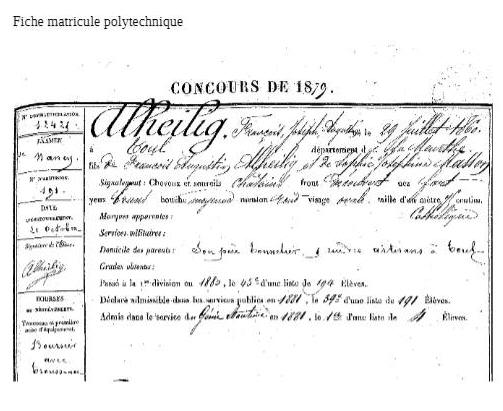 Fiche matricule polytechnique
CONCOURS DE 1879.
N° D'IMMATRICULATION.
12421
EXAMEN
de Nancy
N° D'ADMISSION.
191.
DATE
21 Octobre
Signature de l'Élève.
Alheilig
BOURSES
Trousseau et première mise d'équipement.
Boursier
avec
trousseau
Alheilig, François, Joseph, Augustin, le 29 Juillet 1860.
à Toul département de la Meurthe
fils de François Augustin Alheilig et de Sophie Joséphine
Signalement : Cheveux et sourcils châtains front nez
yeux bouche moyenne menton rond visage ovale taille d'un mètre centim.
Marques apparentes : Catholique
Services militaires :
Domicile des parents : Son père artisans à Toul
Grades obtenus :
Passé à la 1re division en 1880, le 45e d'une liste de 194 Élèves.
Déclaré admissible dans les services publics en 1881, le 39e d'une liste de 191 Élèves.
Admis dans le service des Génie Maritime en 1881, le 1er d'une liste de 4 Élèves.